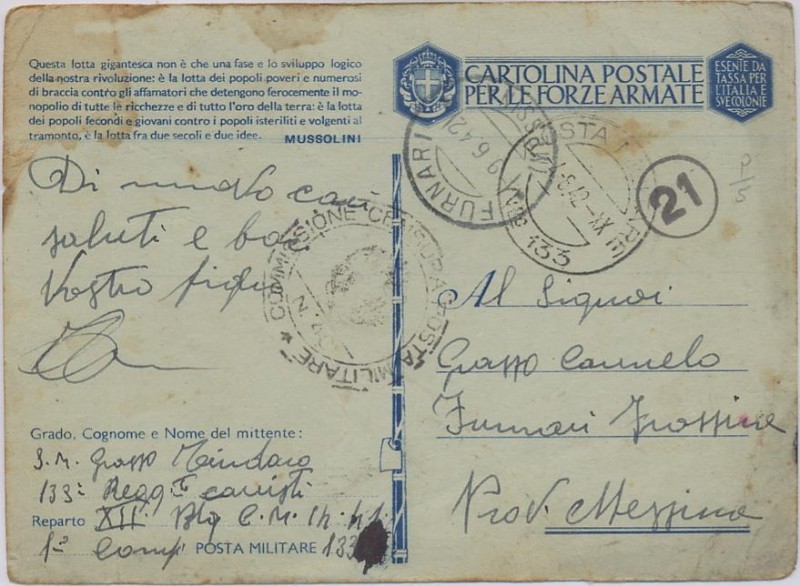 Questa lotta gigantesca non è che una fase e lo sviluppo logico
della nostra rivoluzione: è la lotta dei popoli poveri e numerosi
di braccia contro gli affamatori che detengono ferocemente il mo-
nopolio di tutte le ricchezze e di tutto l'oro della terra: è la lotta
dei popoli fecondi e giovani contro i popoli isteriliti e volgenti al
tramonto, è la lotta fra due secoli e due idee.
MUSSOLINI
CARTOLINA POSTALE
PER LE FORZE ARMATE
ESENTE DA
TASSA PER
L'ITALIA E
SVE COLONIE
FURNARI (MESSINA)
9.6.42
POSTA MILITARE
133
21
P/5
Di nuovo cari
saluti e baci
Vostro figlio
COMMISSIONE CENSURA POSTA MILITARE
Al Signor
Grasso Carmelo
Furnari
Prov. Messina
Grado, Cognome e Nome del mittente:
S.M. Grasso Tindaro
133° Regg. carristi
Reparto XII° Btg
1ª Comp POSTA MILITARE 133